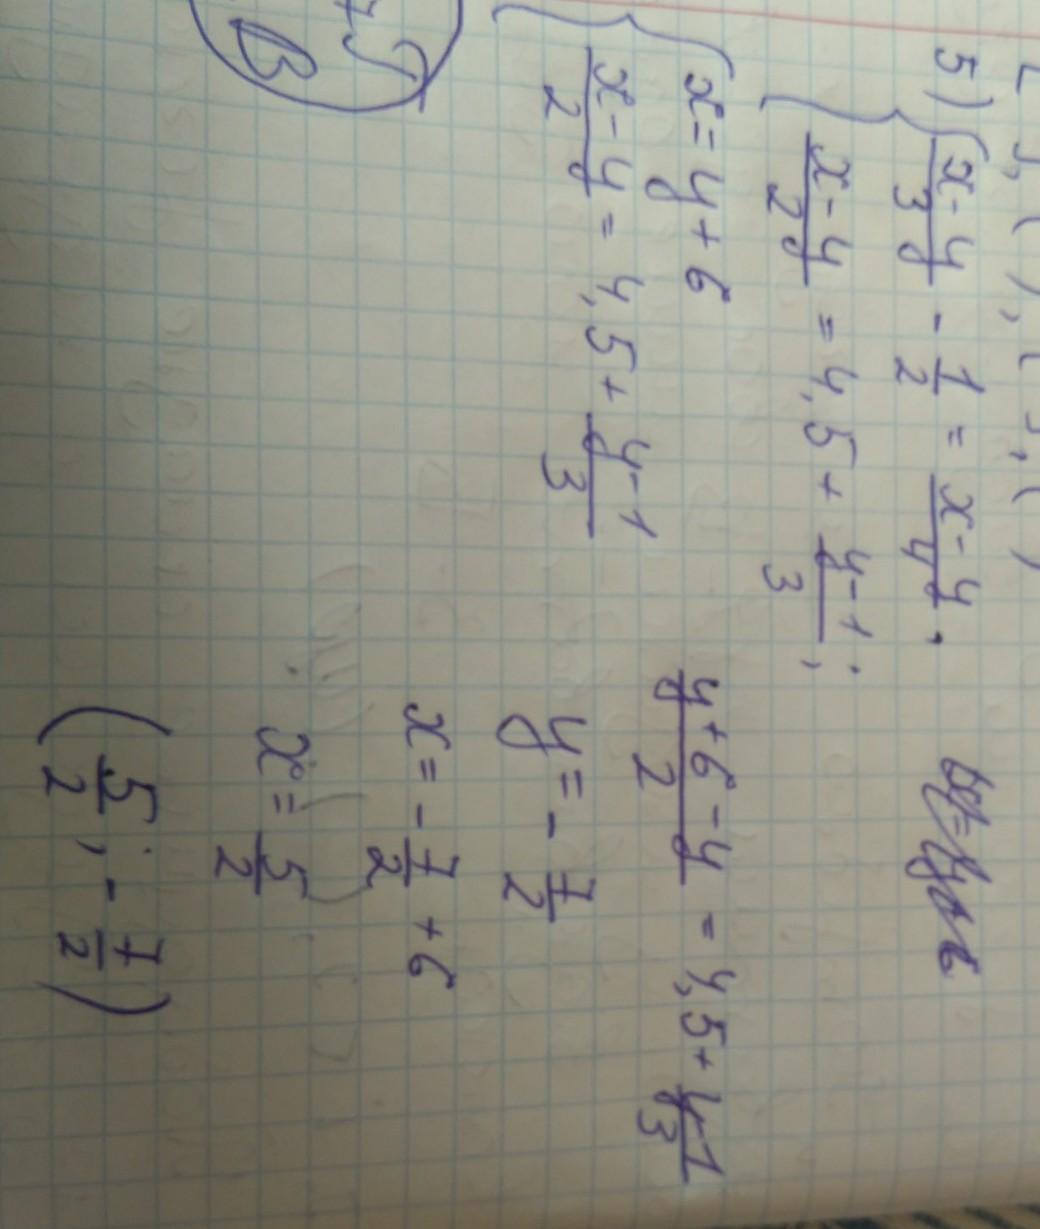 5) { (x-y)/3 - 1/2 = (x-y)/4,
(x-y)/2 = 4,5 + (y-1)/3;
{ x = y + 6
(x-y)/2 = 4,5 + (y-1)/3
(y+6-y)/2 = 4,5 + (y-1)/3
y = - 7/2
x = - 7/2 + 6
x = 5/2
(5/2; - 7/2)
B